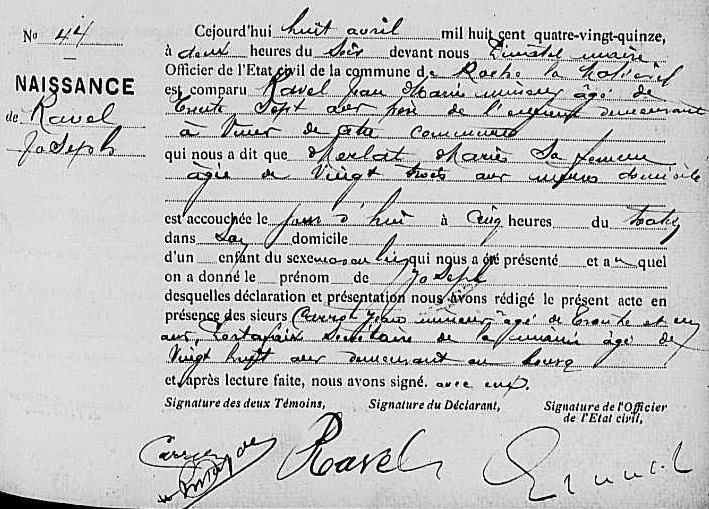 No 44
NAISSANCE
de Ravel
Joseph
Cejourd'hui huit avril mil huit cent quatre-vingt-quinze,
à deux heures du soir devant nous maire
Officier de l'Etat civil de la commune de Roche la Molière
est comparu Ravel Jean Marie mineur âgé de
trente sept ans père de l'enfant demeurant
à de cette commune
qui nous a dit que Merlat Marie sa femme
agée de vingt trois ans même domicile
est accouchée le jour d'hui à cinq heures du matin
dans son domicile
d'un enfant du sexe masculin qui nous a été présenté et au quel
on a donné le prénom de Joseph
desquelles déclaration et présentation nous avons rédigé le présent acte en
présence des sieurs Jean mineur âgé de trente et un
ans, secrétaire de la mairie âgé de
vingt huit ans demeurant au bourg
et, après lecture faite, nous avons signé. avec eux.
Signature des deux Témoins, Signature du Déclarant, Signature de l'Officier
de l'Etat civil,
Ravel